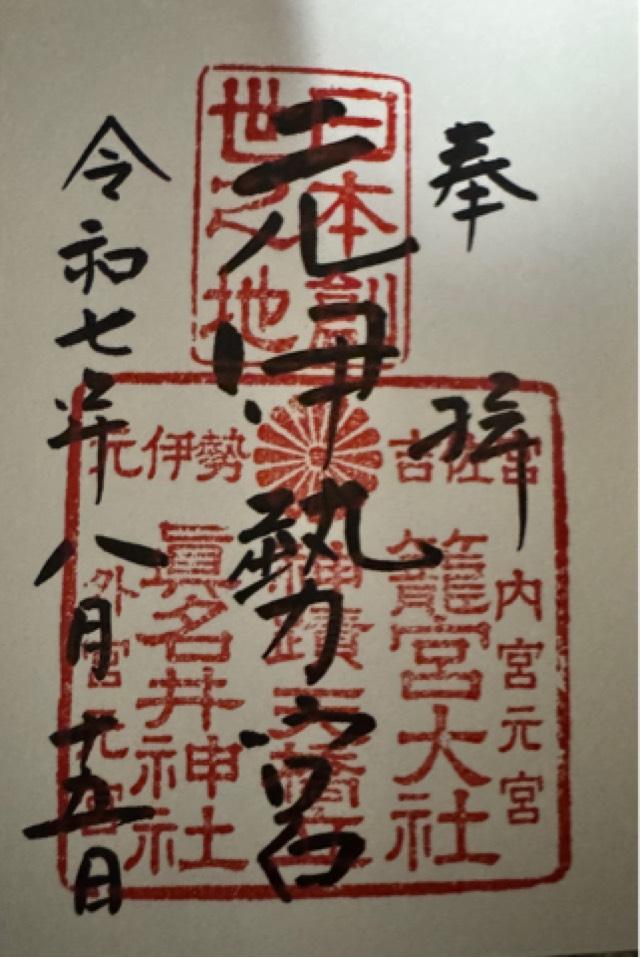 奉拝
元伊勢宮
令和七年八月十五日
日本創
世之地
元伊勢 吉佐宮
内宮元宮
籠宮大社
神蹟天橋立
眞名井神社
外宮元宮